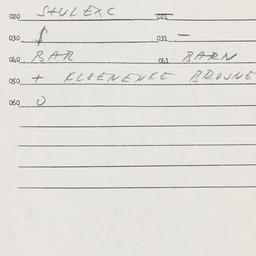 020 StULEXC 021
030 $ 031 —
040 BAR 041 BARN
050 + KLEENENKE BRUSNE
060 U